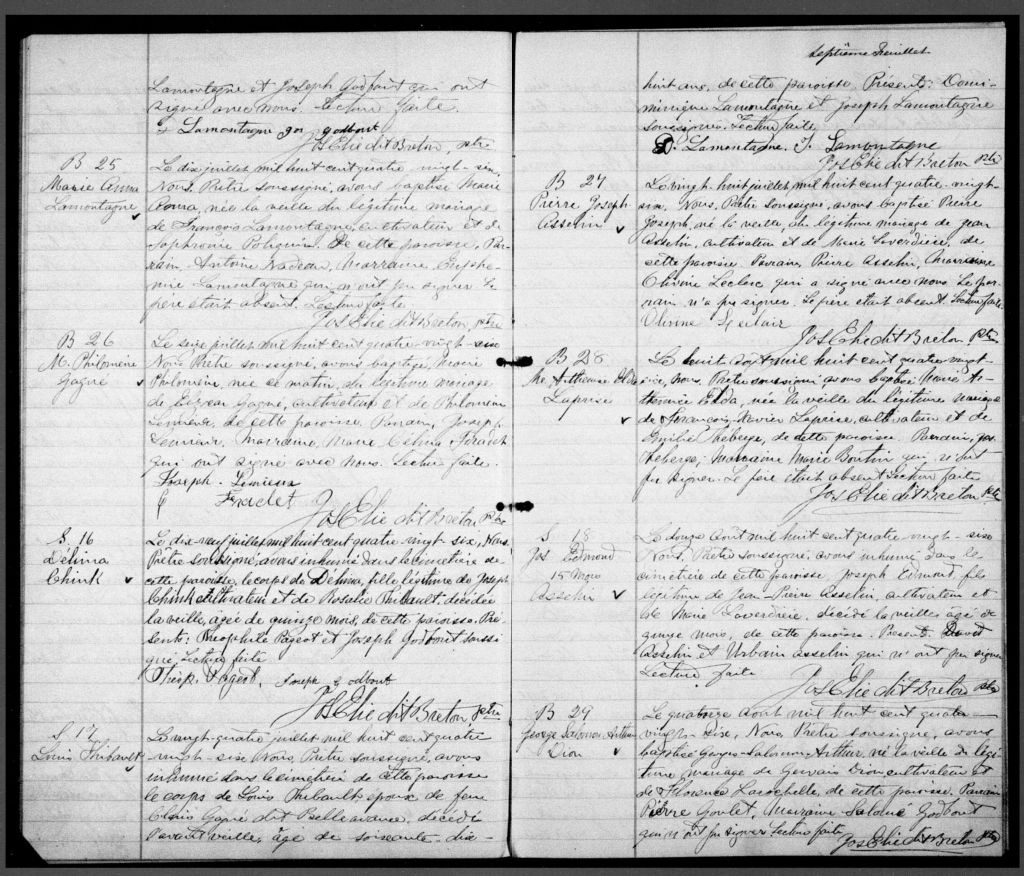 Lamontagne et Joseph Godbout qui ont
signé avec nous. Lecture faite
Lamontagne Jos godbout
Jos Elie dit Breton ptre
B 25
Marie Anna
Lamontagne
Le dix juillet mil huit cent quatre vingt-six,
Nous, Prêtre soussigné, avons baptisé Marie
née la veille du légitime mariage
de François Lamontagne, cultivateur et de
Sophronie Poliquin, de cette paroisse, Par-
rain, Antoine Nadeau, Marraine, Euphé-
mie Lamontagne qui n'ont pu signer. Le
père était absent. Lecture faite
Jos Elie dit Breton, ptre
B 26
M. Philomène
Gagné
Le seize juillet mil huit cent quatre-vingt-six
Nous Prêtre soussigné, avons baptisé, Marie
Philomène, née ce matin, du légitime mariage
de Elzéar Gagné, cultivateur et de Philomène
Lemieux, de cette paroisse. Parrain, Joseph
Lemieux, Marraine, Marie Célina Fradet
qui ont signé avec nous. Lecture faite.
Joseph Lemieux
Fradet
Jos Elie dit Breton ptre
S. 16
Délima
Chink
Le dix neuf juillet mil huit cent quatre vingt six, Nous
Prêtre soussigné, avons inhumé dans le cimetière de
cette paroisse, le corps de Délima, fille légitime de Joseph
Chink cultivateur et de Rosalie Thibault, décédée
la veille, agée de quinze mois, de cette paroisse. Pré-
sents: Théophile Pageot et Joseph Godbout soussi
gné, Lecture faite
Théop. Pageot. Joseph godbout
Jos Elie dit Breton ptre
S. 17
Louis Thibault
Le vingt-quatre juillet mil huit cent quatre
vingt-six Nous, Prêtre soussigné, avons
inhumé dans le cimetière de cette paroisse
le corps de Louis Thibault époux de feue
Gagné dit Belleavance, décédé
l'avant veille, âgé de soixante-dix-
Septième Feuillet
huit ans, de cette paroisse. Présents: Domi-
minique Lamontagne et Joseph Lamontagne
soussignés. Lecture faite
D. Lamontagne. J. Lamontagne
Jos Elie dit Breton Ptre
B 27
Pierre Joseph
Asselin
Le vingt-huit juillet mil huit cent quatre-vingt-
six, Nous, Prêtre soussigné, avons baptisé Pierre
Joseph, né la veille du légitime mariage de Jean
Asselin, cultivateur et de Marie Laverdière, de
cette paroisse Parrain, Pierre Asselin, Marraine
Olivine Leclerc qui a signé avec nous. Le par-
rain n'a pu signer. Le père était absent. Lecture faite.
Olivine
Jos Elie dit Breton Ptre
B 28
Me. Arthémise Elda
Laprise
Le huit août mil huit cent quatre vingt
six, Nous, Prêtre soussigné avons baptisé Marie Ar-
thémise Elda, née la veille du légitime mariage
de François Xavier Laprise, cultivateur et de
Emilie Theberge, de cette paroisse. Parrain, Jos
Theberge, Marraine Marie Boutin qui n'ont
pu signer. Le père était absent Lecture faite
Jos Elie dit Breton Ptre
S 18
Jos Edmond
15 Mois
Asselin
Le douze août mil huit cent quatre vingt-six
Nous, Prêtre soussigné, avons inhumé dans le
cimetière de cette paroisse Joseph Edmond, fils
légitime de Jean-Pierre Asselin, cultivateur et
de Marie Laverdière, décédé la veille âgé de
quinze mois, de cette paroisse. Présents David
Asselin et Urbain Asselin qui n'ont pu signer
Lecture faite
Jos Elie dit Breton Ptre
B 29
George Salomon Arthur
Dion
Le quatorze août mil huit cent quatre-
vingt-six, Nous, Prêtre soussigné, avons
baptisé Georges-Salomon-Arthur, né la veille du légi-
time mariage de Gervais Dion cultivateur et
de Florence Larochelle, de cette paroisse. Parrain
Pierre Goulet, Marraine Salomé Godbout
qui n'ont pu signer Lecture faite
Jos Elie dit Breton Ptre